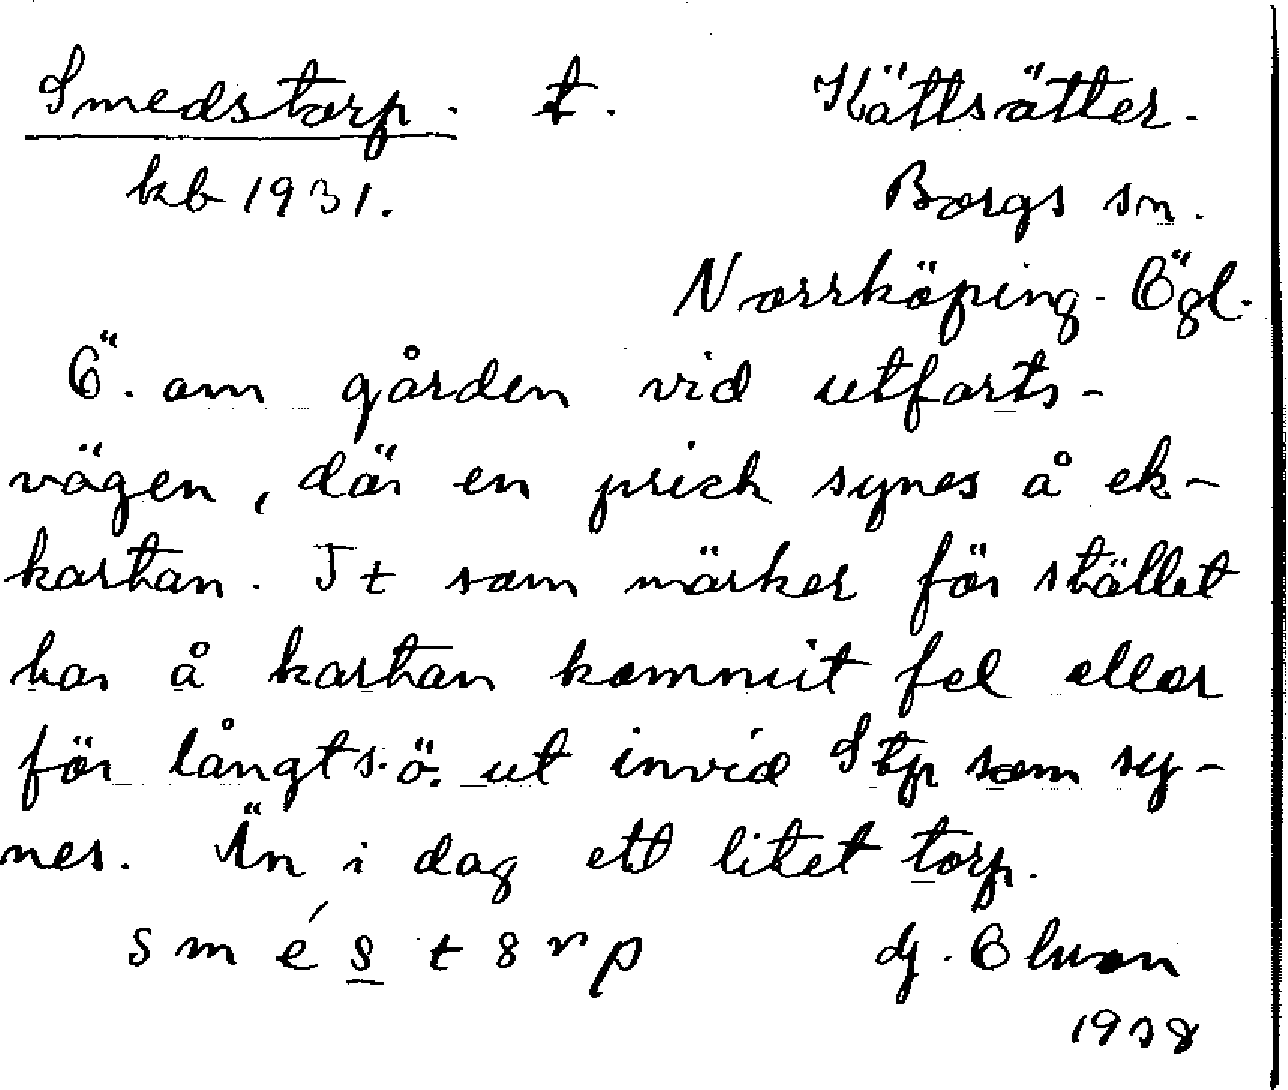 Smedstorp. t. Kättsätter.
kb 1931. Borgs sn.
Norrköping. Ögl.
Ö. om gården vid utfarts-
vägen, där en prick synes å ek-
kartan. Tt som märker för stället
har å kartan kommit fel eller
för långt s.ö. ut invid Stp som sy-
nes. Än i dag ett litet torp.
s m é s t 8 r p
1938